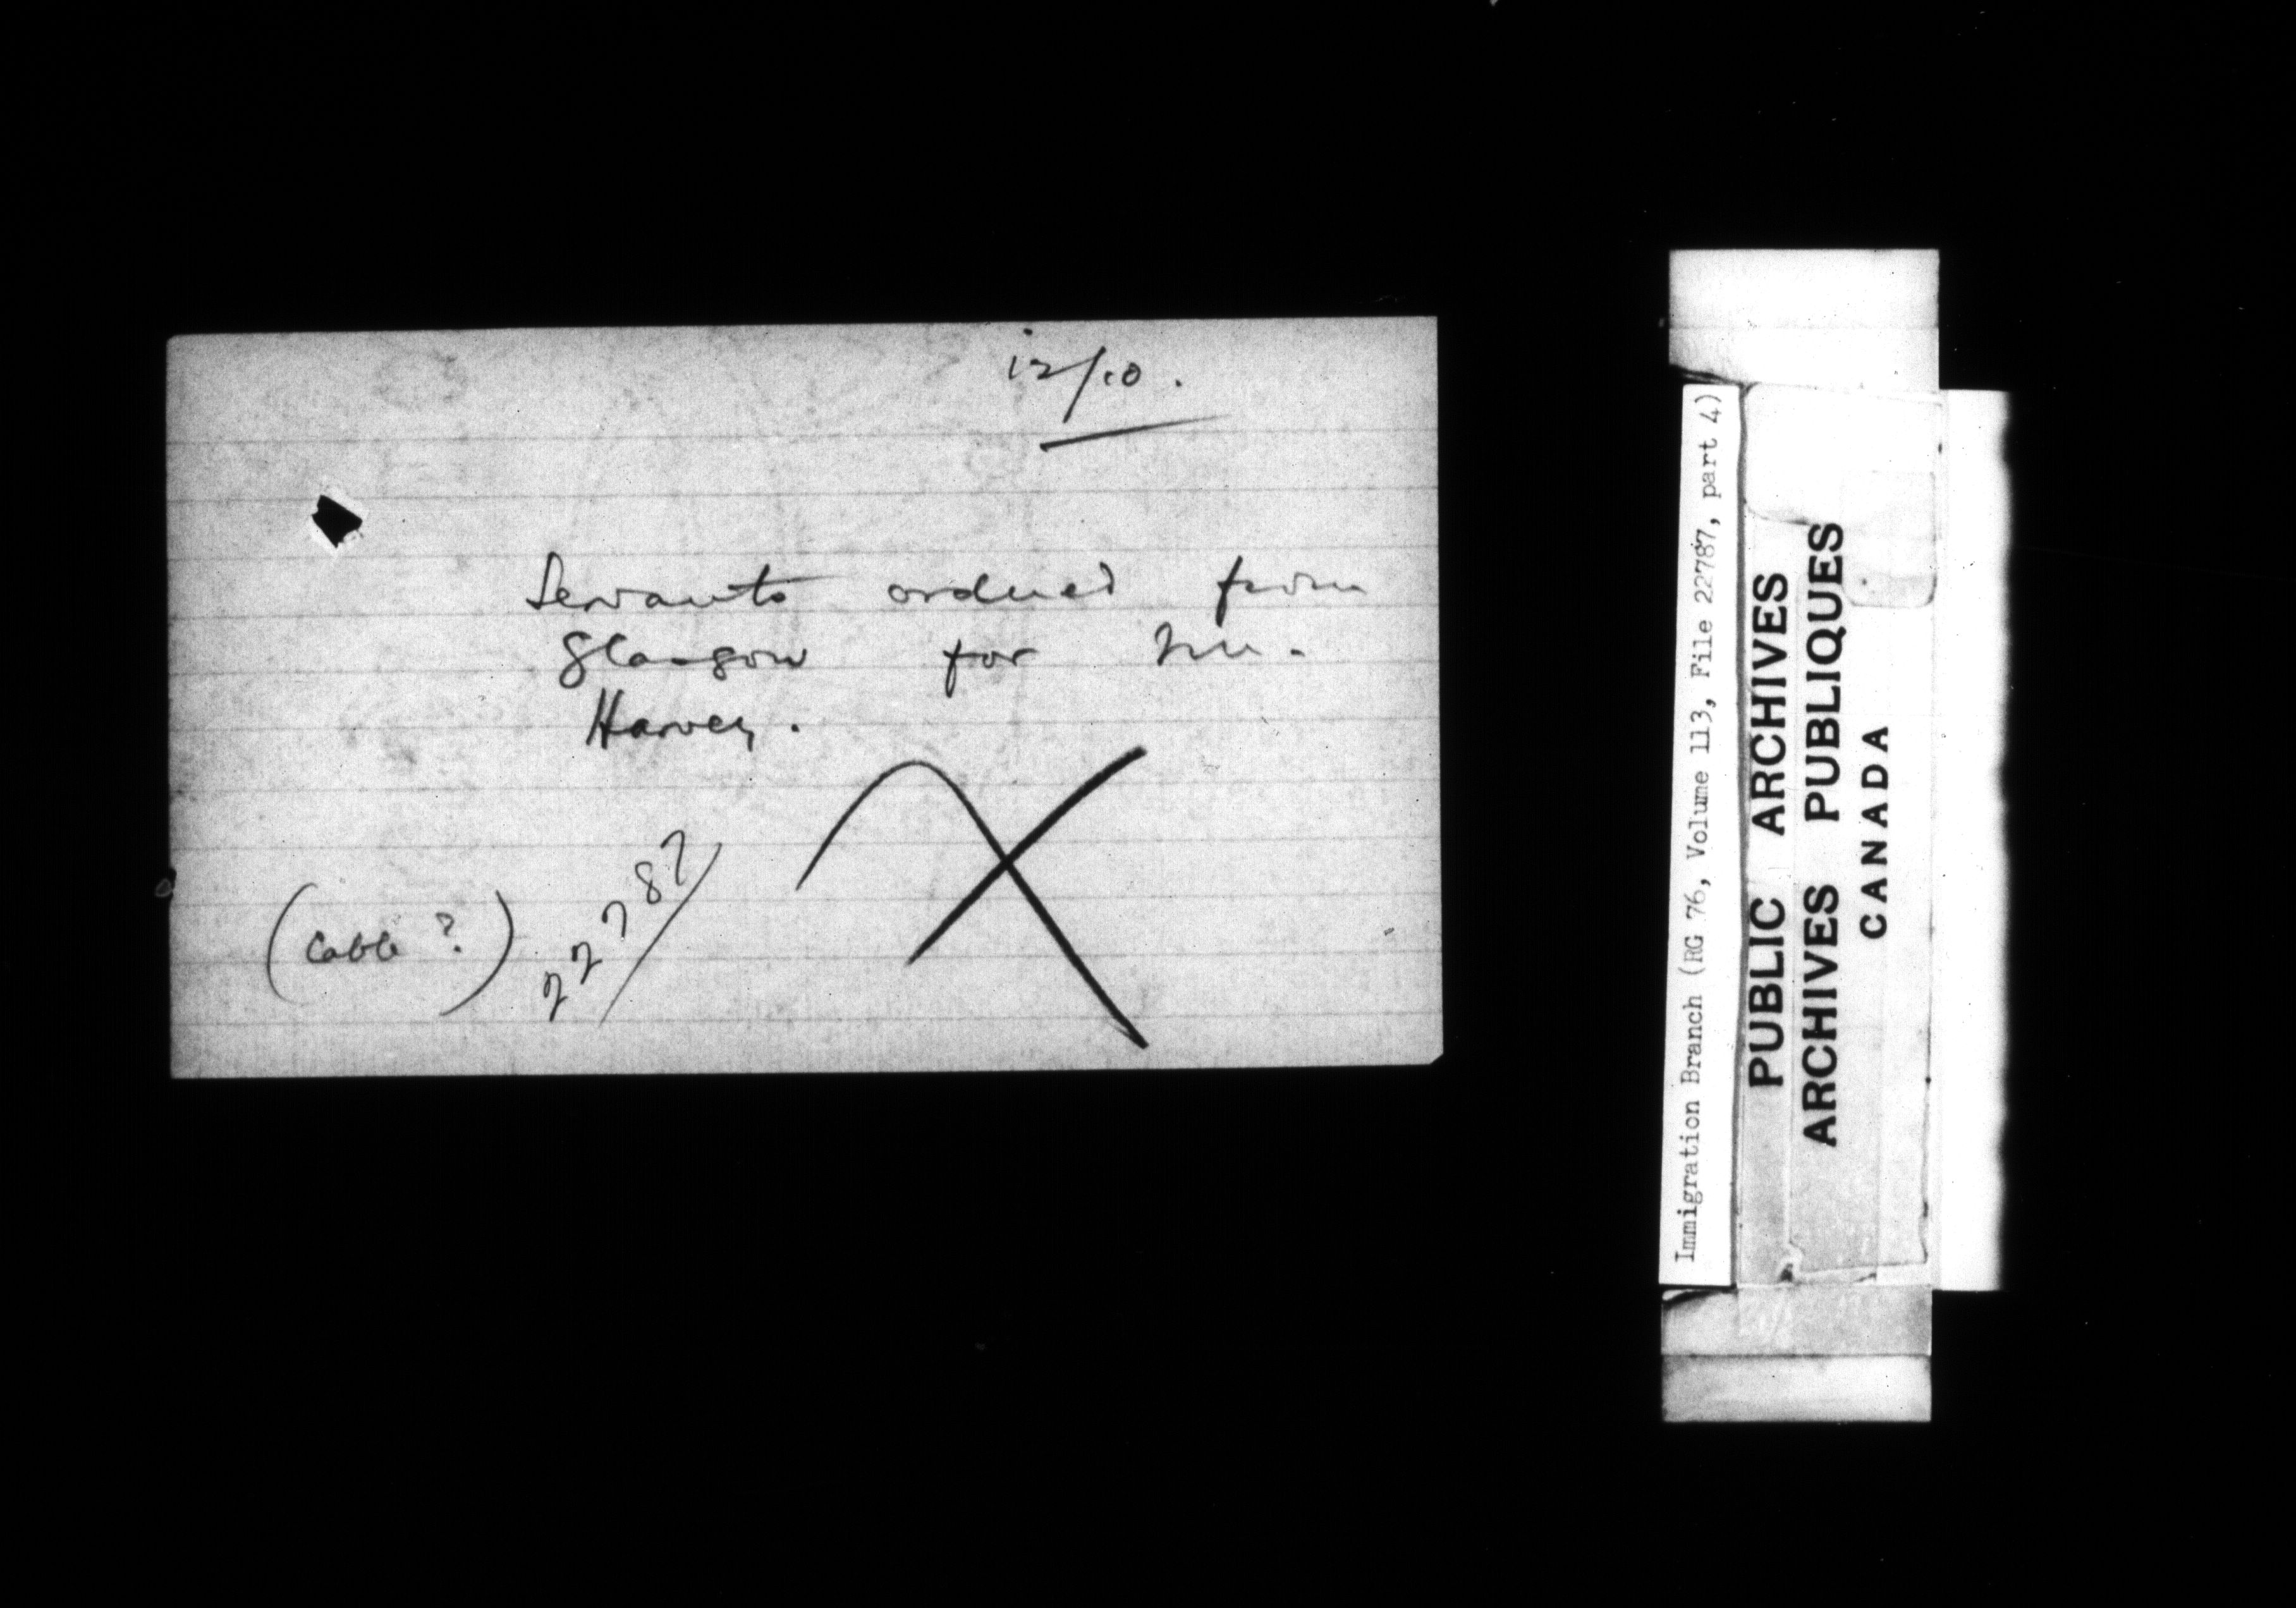 12/10.
Servants ordered from
Glasgow for Mr.
Harvey.
(Cable ?)
22787
Immigration Branch (RG 76, Volume 113, File 22787, part 4)
PUBLIC ARCHIVES
ARCHIVES PUBLIQUES
CANADA